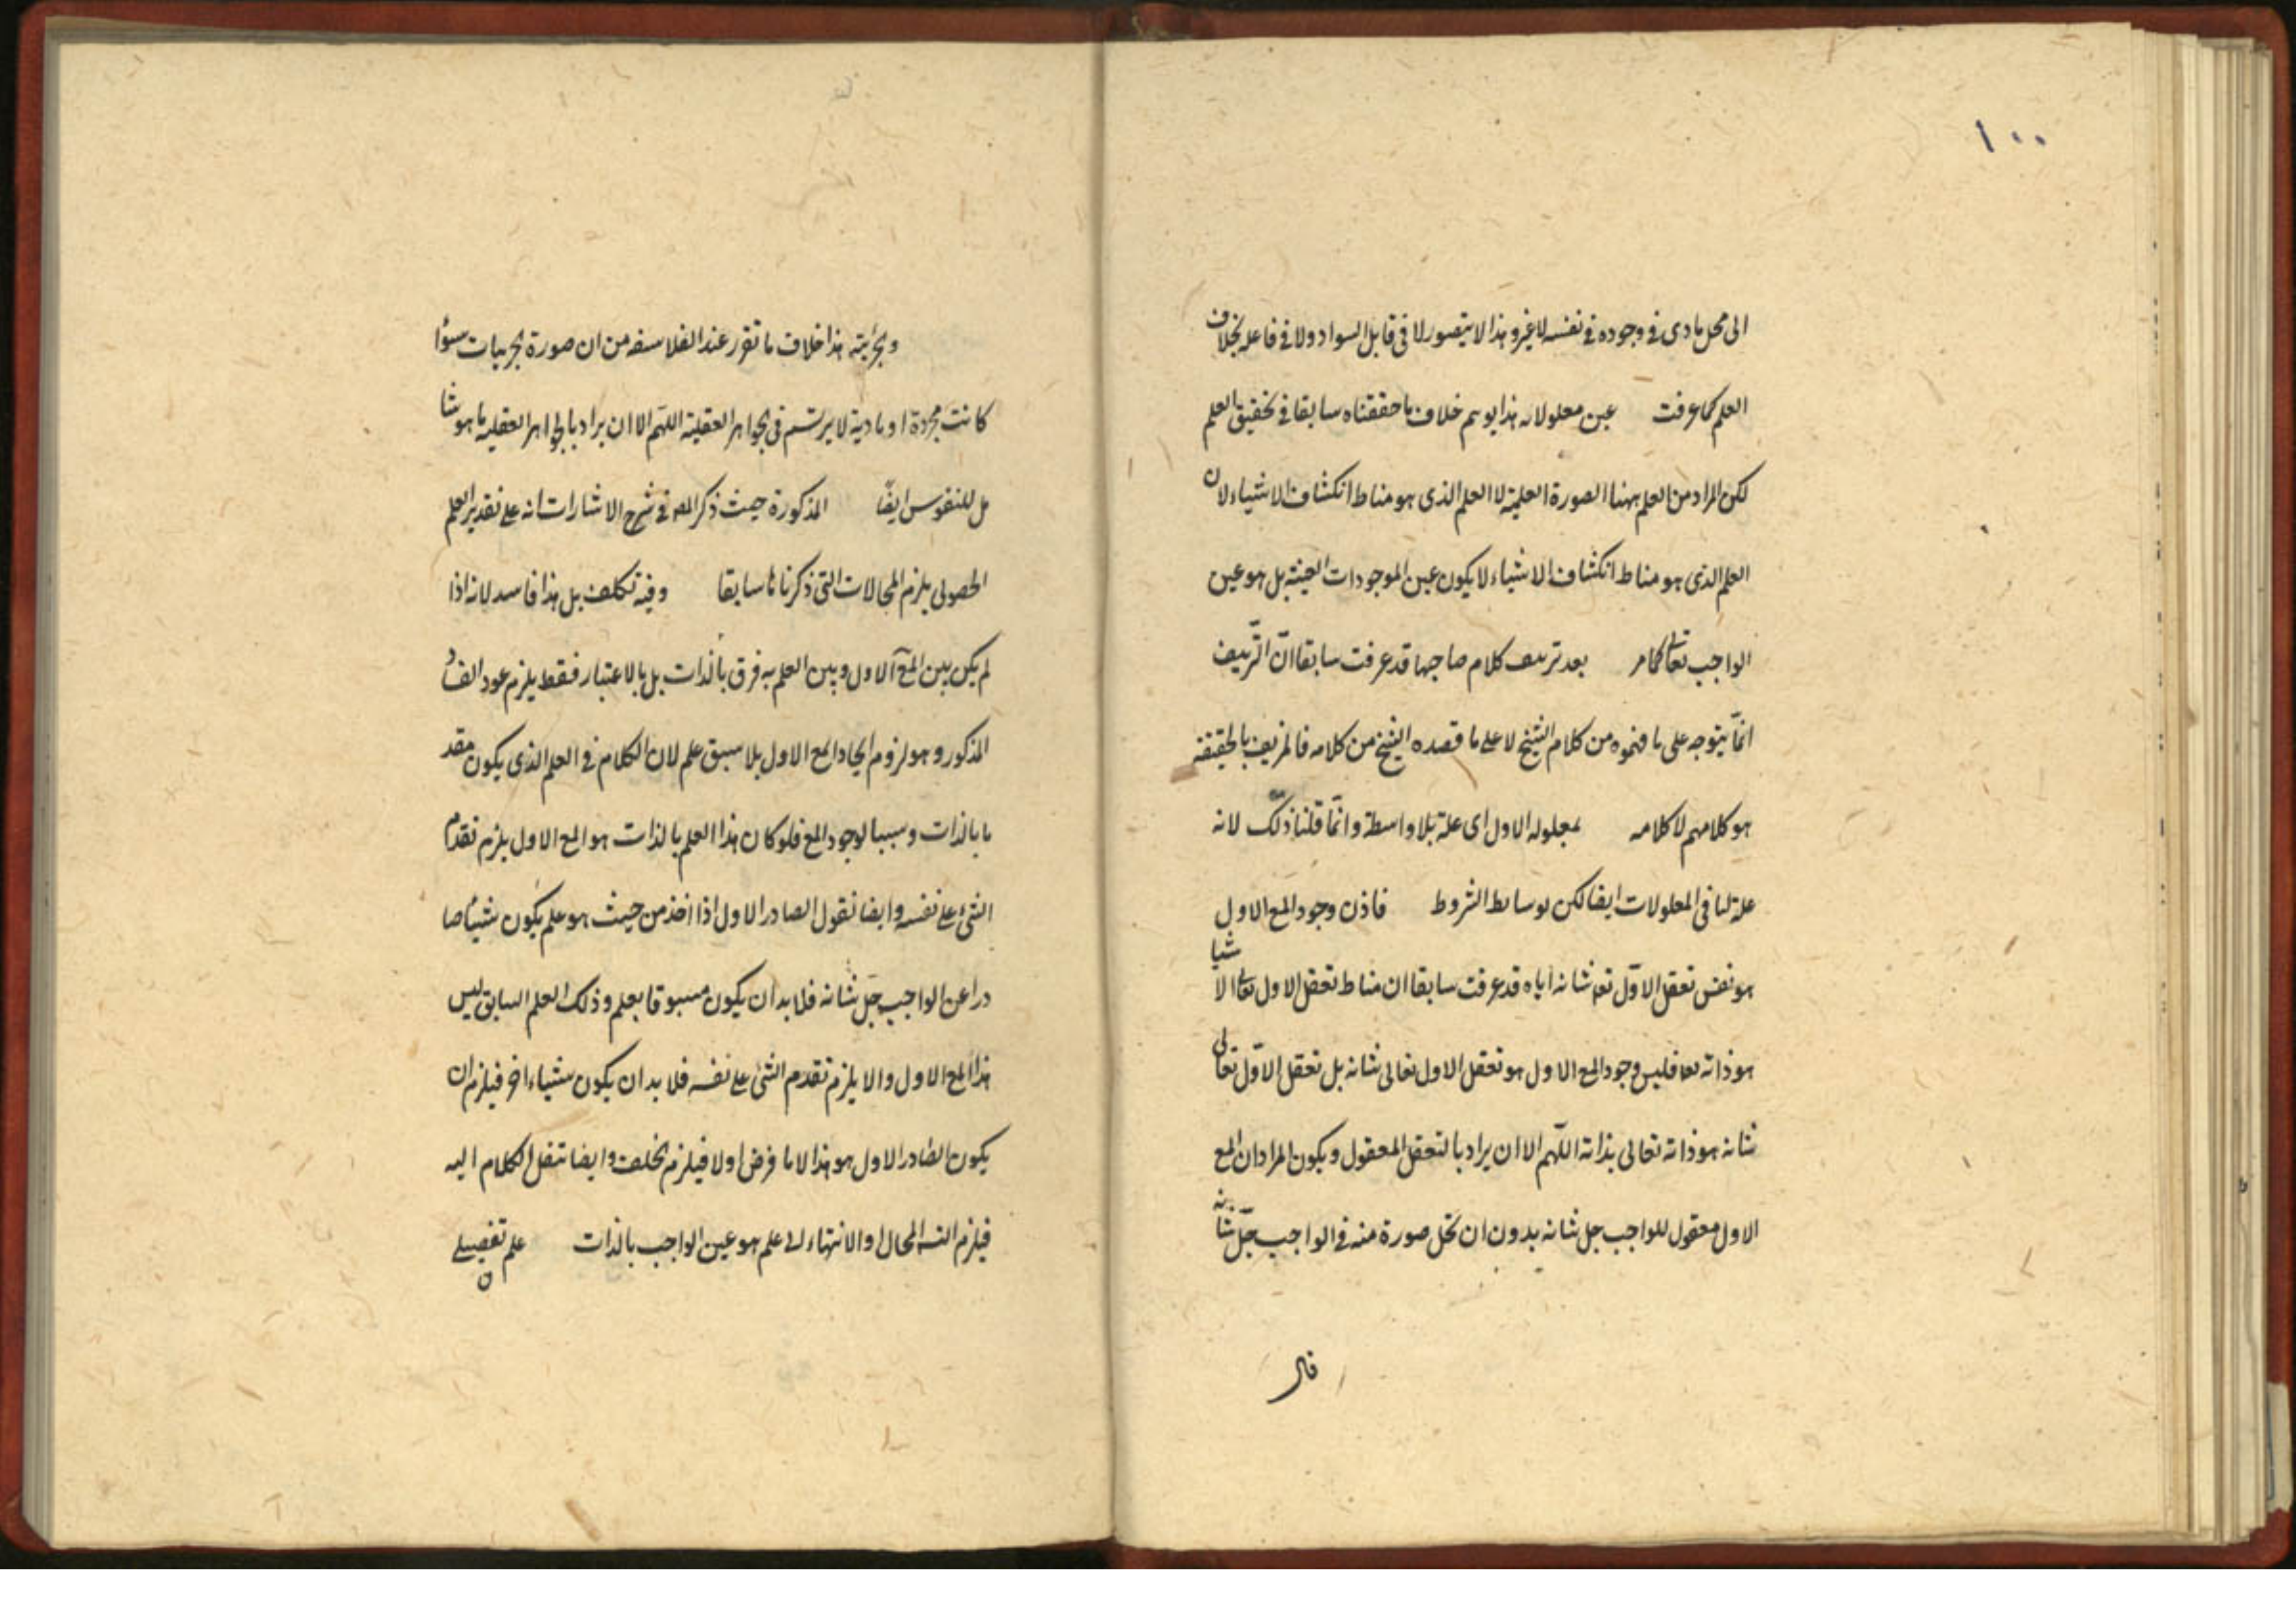 ١٠٠
الى محل مادى فى وجوده فى نفسه لا غير وهذا لا يتصور لا فى قابل السواد ولا فى فاعله بخلاف
العلم كما عرفت عين معلولاته هذا يوهم خلاف ما حققناه سابقا فى تحقيق العلم
لكن المراد من العلم ههنا الصورة العلمية لا العلم الذى هو مناط انكشاف الاشياء لان
العلم الذى هو مناط انكشاف الاشياء لا يكون عين الموجودات العينية بل هو عين
الواجب تعالى كما مر بعد تزييف كلام صاحبها قد عرفت سابقا انّ التزييف
انّما يتوجه على ما فهموه من كلام الشيخ لا على ما قصده الشيخ من كلامه فالمزيف بالحقيقة
هو كلامهم لا كلامه بمعلوله الاول اى علة بلا واسطة وانّما قلنا ذلك لانه
علة لباقى المعلولات ايضا لكن بوسائط الشروط فاذن وجود المع الاول
هو نفس تعقل الاوّل تعه شانه اياه قد عرفت سابقا ان مناط تعقل الاول تعالى الاشيا
هو ذاته تعا فليس وجود المع الاول هو تعقل الاول تعالى شانه بل تعقل الاوّل تعالى
شانه هو ذاته تعالى بذاته اللّهم الا ان يراد بالتعقل المعقول ويكون المراد ان المع
الاول معقول للواجب جل شانه بدون ان تحل صورة منه فى الواجب جلّ شانه
قال
وبجزئيته هذا خلاف ما تقرر عند الفلاسفه من ان صورة الجزئيات سوًا
كانت مجردة او مادية لا يرتسم فى الجواهر العقلية اللّهم الا ان يراد بالجواهر العقلية ما هو شا
مل للنفوس ايضًا المذكورة حيث ذكر المص فى شرح الاشارات انه على تقدير العلم
الحصولى يلزم المحالات التى ذكرناها سابقا وفيه تكلف بل هذا فاسد لانه اذا
لم يكن بين المع الاول وبين العلم به فرق بالذات بل بالاعتبار فقط يلزم عود الفساد
المذكور وهو لزوم ايجاد المع الاول بلا سبق علم لان الكلام فى العلم الذى يكون مقد
ما بالذات وسببا لوجود المع فلو كان هذا العلم بالذات هو المع الاول يلزم تقدم
الشئ على نفسه وايضا نقول الصادر الاول اذا اخذ من حيث هو علم يكون شيئا صا
درا عن الواجب جل شانه فلا بد ان يكون مسبوقا بعلم وذلك العلم السابق ليس
هذا المع الاول والا يلزم تقدم الشئ على نفسه فلا بد ان يكون شياء اخر فيلزم ان
يكون الصادر الاول هو هذا لا ما فرض اولا فيلزم الخلف وايضا ننقل الكلام اليه
فيلزم التسه المحال او الانتهاء الى علم هو عين الواجب بالذات علم تفصيلى